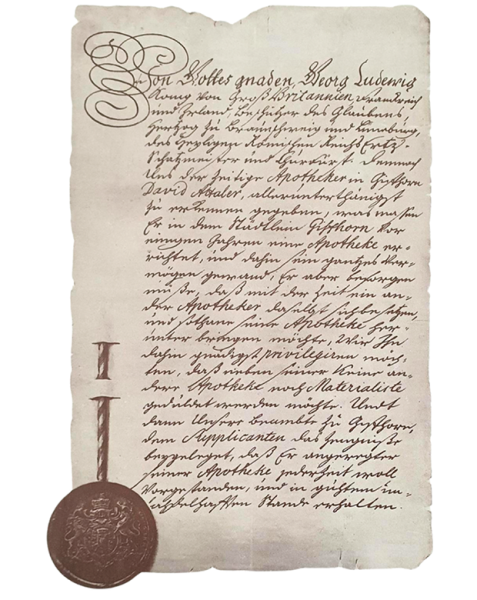 Von Gottes gnaden, Georg Ludewig
König von Groß Britannien, Franckreich
und Irland, beschützer des Glaubens,
Herzog zu Braunschweig und Lüneburg,
des Heyligen Römschen Reichs Ertz-
Schatzmeister und Churfürst. Demnach
Uns der zeitige Apotheker in Gifthorn
David Attaler, allerunterthänigst
zu erkennen gegeben, was maßen
Er in dem Städtlein Gifthorn vor
einigen Jahren eine Apotheke er-
richtet, und dahin sein gantzes Ver-
mögen gewand, Er aber besorgen
müße, daß mit der Zeit ein an-
der Apotheker daselbst sich setzen,
und sothane seine Apotheke her-
unter bringen möchte, Wir Ihn
dahin gnädigst privilegiren möch-
ten, daß neben seiner keine an-
dere Apotheke noch Materialiste
geduldet werden möchte. Undt
dann Unsere Beambte zu Gifthorn,
dem Supplicanten das Zeugniße
beygeleget, daß Er angeregter
seiner Apotheke jederzeit woll
Vorgestanden, und in guhtem un-
tadelhafften Stande erhalten.